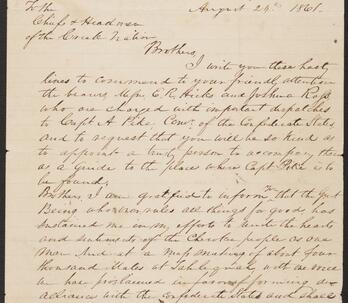 To the August 24th 1861.
Chiefs & Headmen
of the Creek Nation
Brothers,
I write you these hasty
lines to commend to your friendly attention
the bearers Messrs E. R. Hicks and Joshua Ross
who are charged with important dispatches
to Capt A. Pike, Comr. of the Confederate States
and to request that you will be so kind as
to appoint a trusty person to accompany them
as a guide to the place where Capt Pike is to
be found.
Brothers, I am gratified to inform you that the Great
Being who over rules all things for good has
sustained me in my efforts to unite the hearts
and sentiments of the Cherokee people as one
man. And at a Mass meeting of about four
thousand at Tahlequah with one voice
we have proclaimed in favor of forming an
alliance with the Confederate States and shall